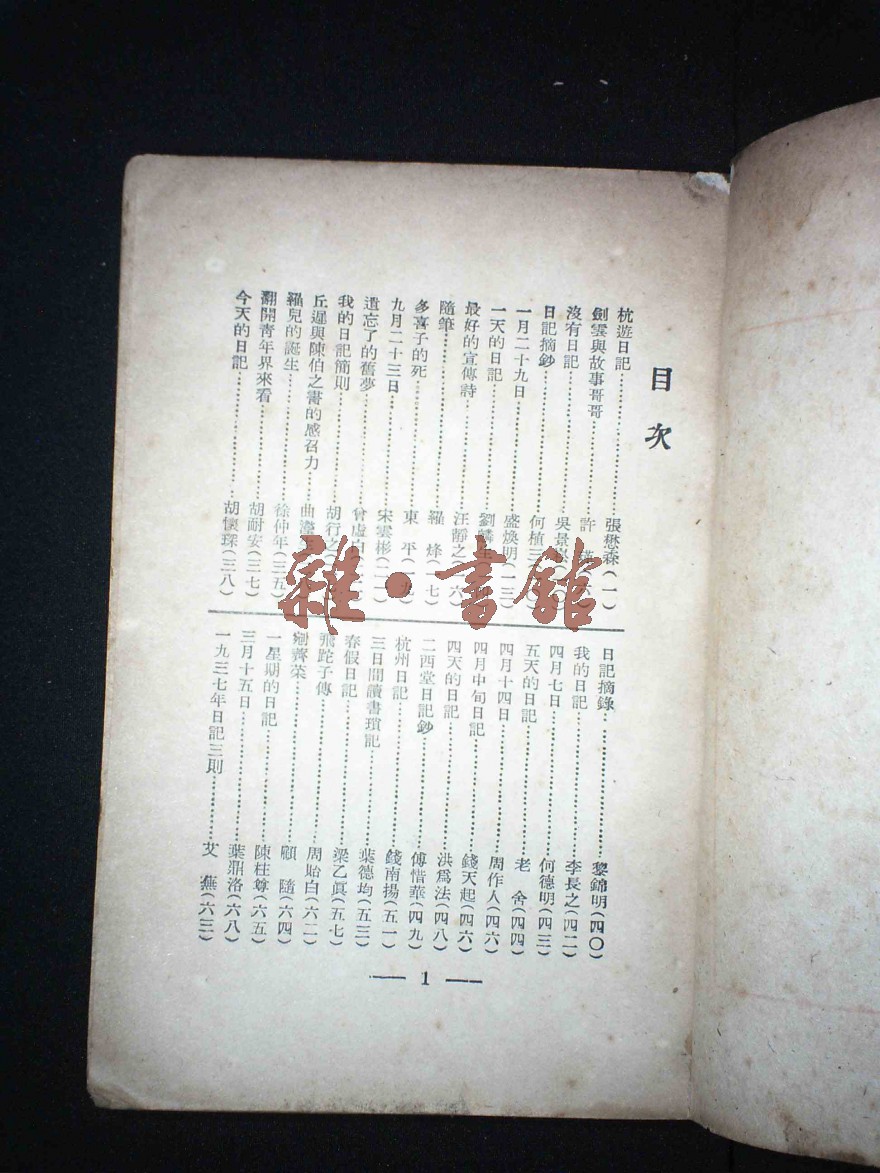 目次
杭遊日記 張懋森(一)
劍雲與故事哥哥 許
沒有日記 吳景崧
日記摘鈔 何植三
一月二十九日 盛煥明(一三)
一天的日記 劉麟生
最好的宣傳詩 汪靜之(一六)
隨筆 羅烽(一七)
多喜子的死 東平(一九)
九月二十三日 宋雲彬
遺忘了的舊夢 曾虛白
我的日記簡則 胡行之
丘遲與陳伯之書的感召力 曲瀅生
貓兒的誕生 徐仲年(三五)
翻開青年界來看 胡耐安(三七)
今天的日記 胡懷琛(三八)
日記摘錄 黎錦明(四〇)
我的日記 李長之(四二)
四月七日 何德明(四三)
五天的日記 老舍(四四)
四月十四日 周作人(四六)
四月中旬日記 錢天起(四六)
四天的日記 洪爲法(四八)
二西堂日記鈔 傅惜華(四九)
杭州日記 錢南揚(五一)
三日間讀書瑣記 葉德均(五三)
春假日記 梁乙眞(五七)
飛跎子傳 周貽白(六二)
剜薺菜 顧隨(六四)
一星期的日記 陳柱尊(六五)
三月十五日 葉鼎洛(六八)
一九三七年日記三則 艾蕪(六三)
— 1 —
雜·書館